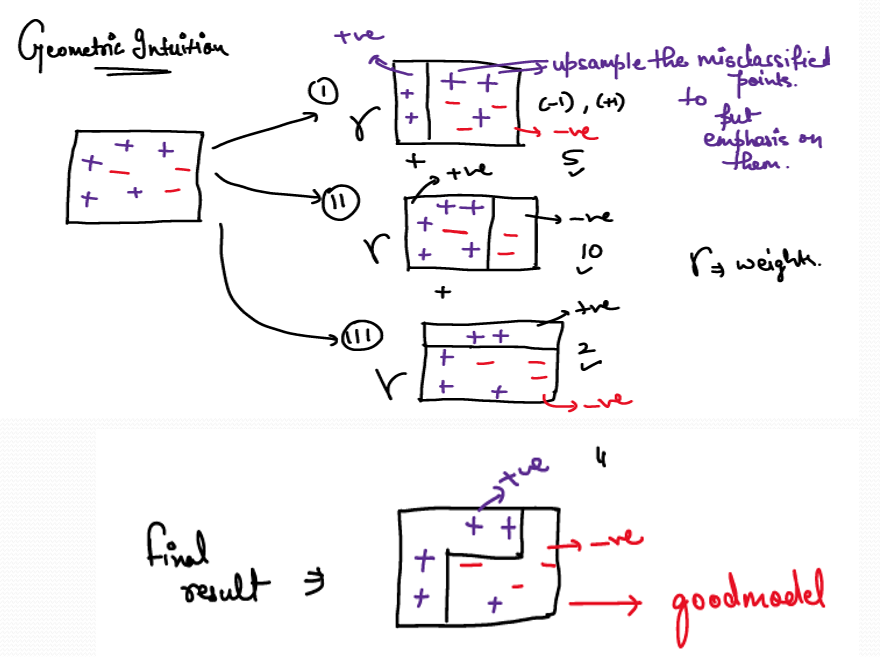 Geometric Intuition
+ve
I
r
upsample the misclassified
points.
to put
emphasis on
them.
(-1), (+1)
-ve
5
+
+ve
II
r
-ve
10
r ⇒ weights.
+
+ve
III
r
2
-ve
4
+ve
final
result ⇒
-ve
goodmodel